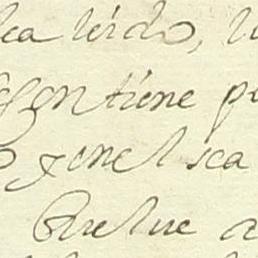 lea leido, l
contiene p
y en el sca
Buelue a